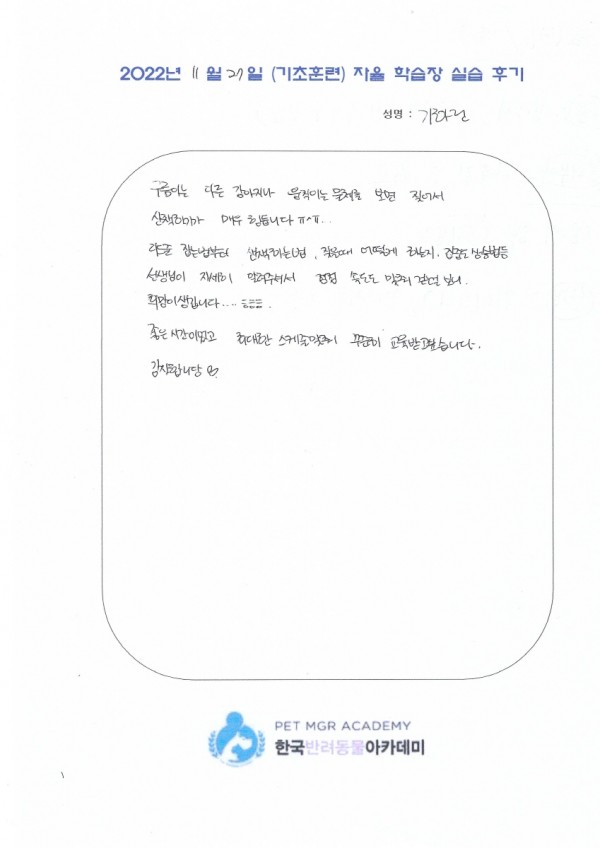 2022년 11월 27일 (기초훈련) 자율 학습장 실습 후기
성명 :
구름이는 다른 강아지나 움직이는 물체를 보면 짖어서
산책하기가 매우 힘듭니다 ㅠㅅㅠ...
리드줄 잡는법부터 산책하는법, 짖을때 어떻게 하는지, 상승법등
선생님이 자세히 알려주셔서 점점 속도도 맞춰 걷다 보니
희망이생깁니다.... ㅎㅎㅎ
좋은시간이였고 최대한 스케줄맞춰서 꾸준히 교육받고싶습니다.
감사합니당 ♡
PET MGR ACADEMY
한국반려동물아카데미